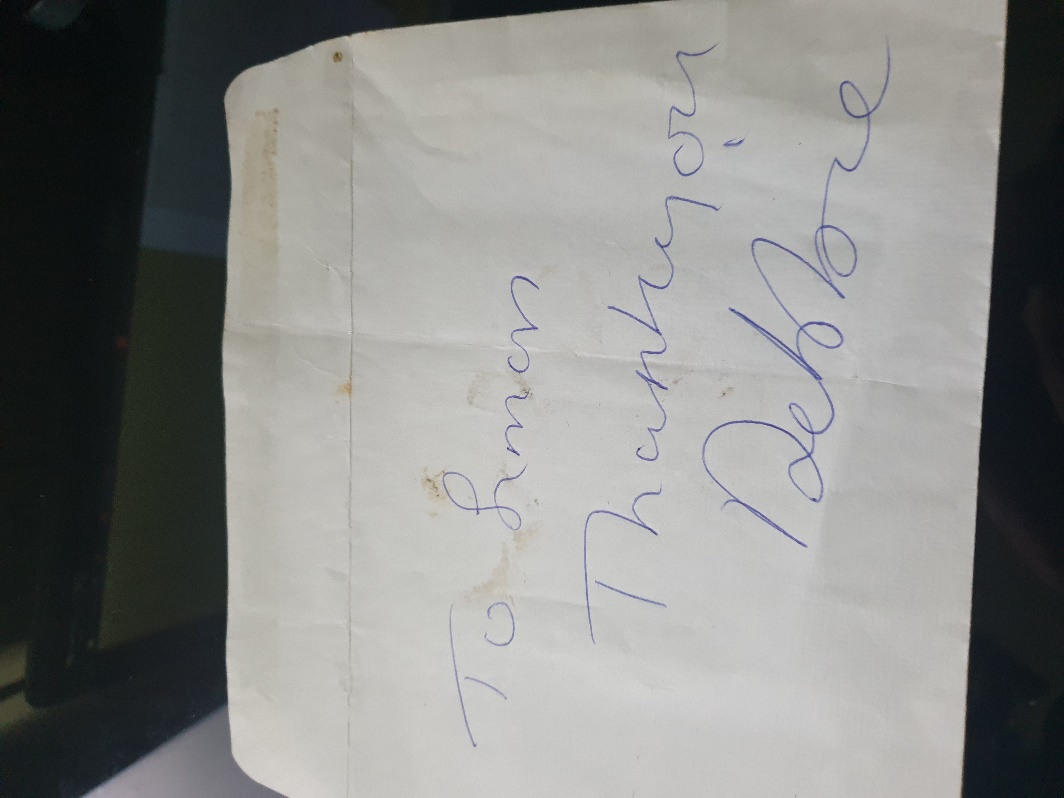 To Simon
Thankyou
Debbie